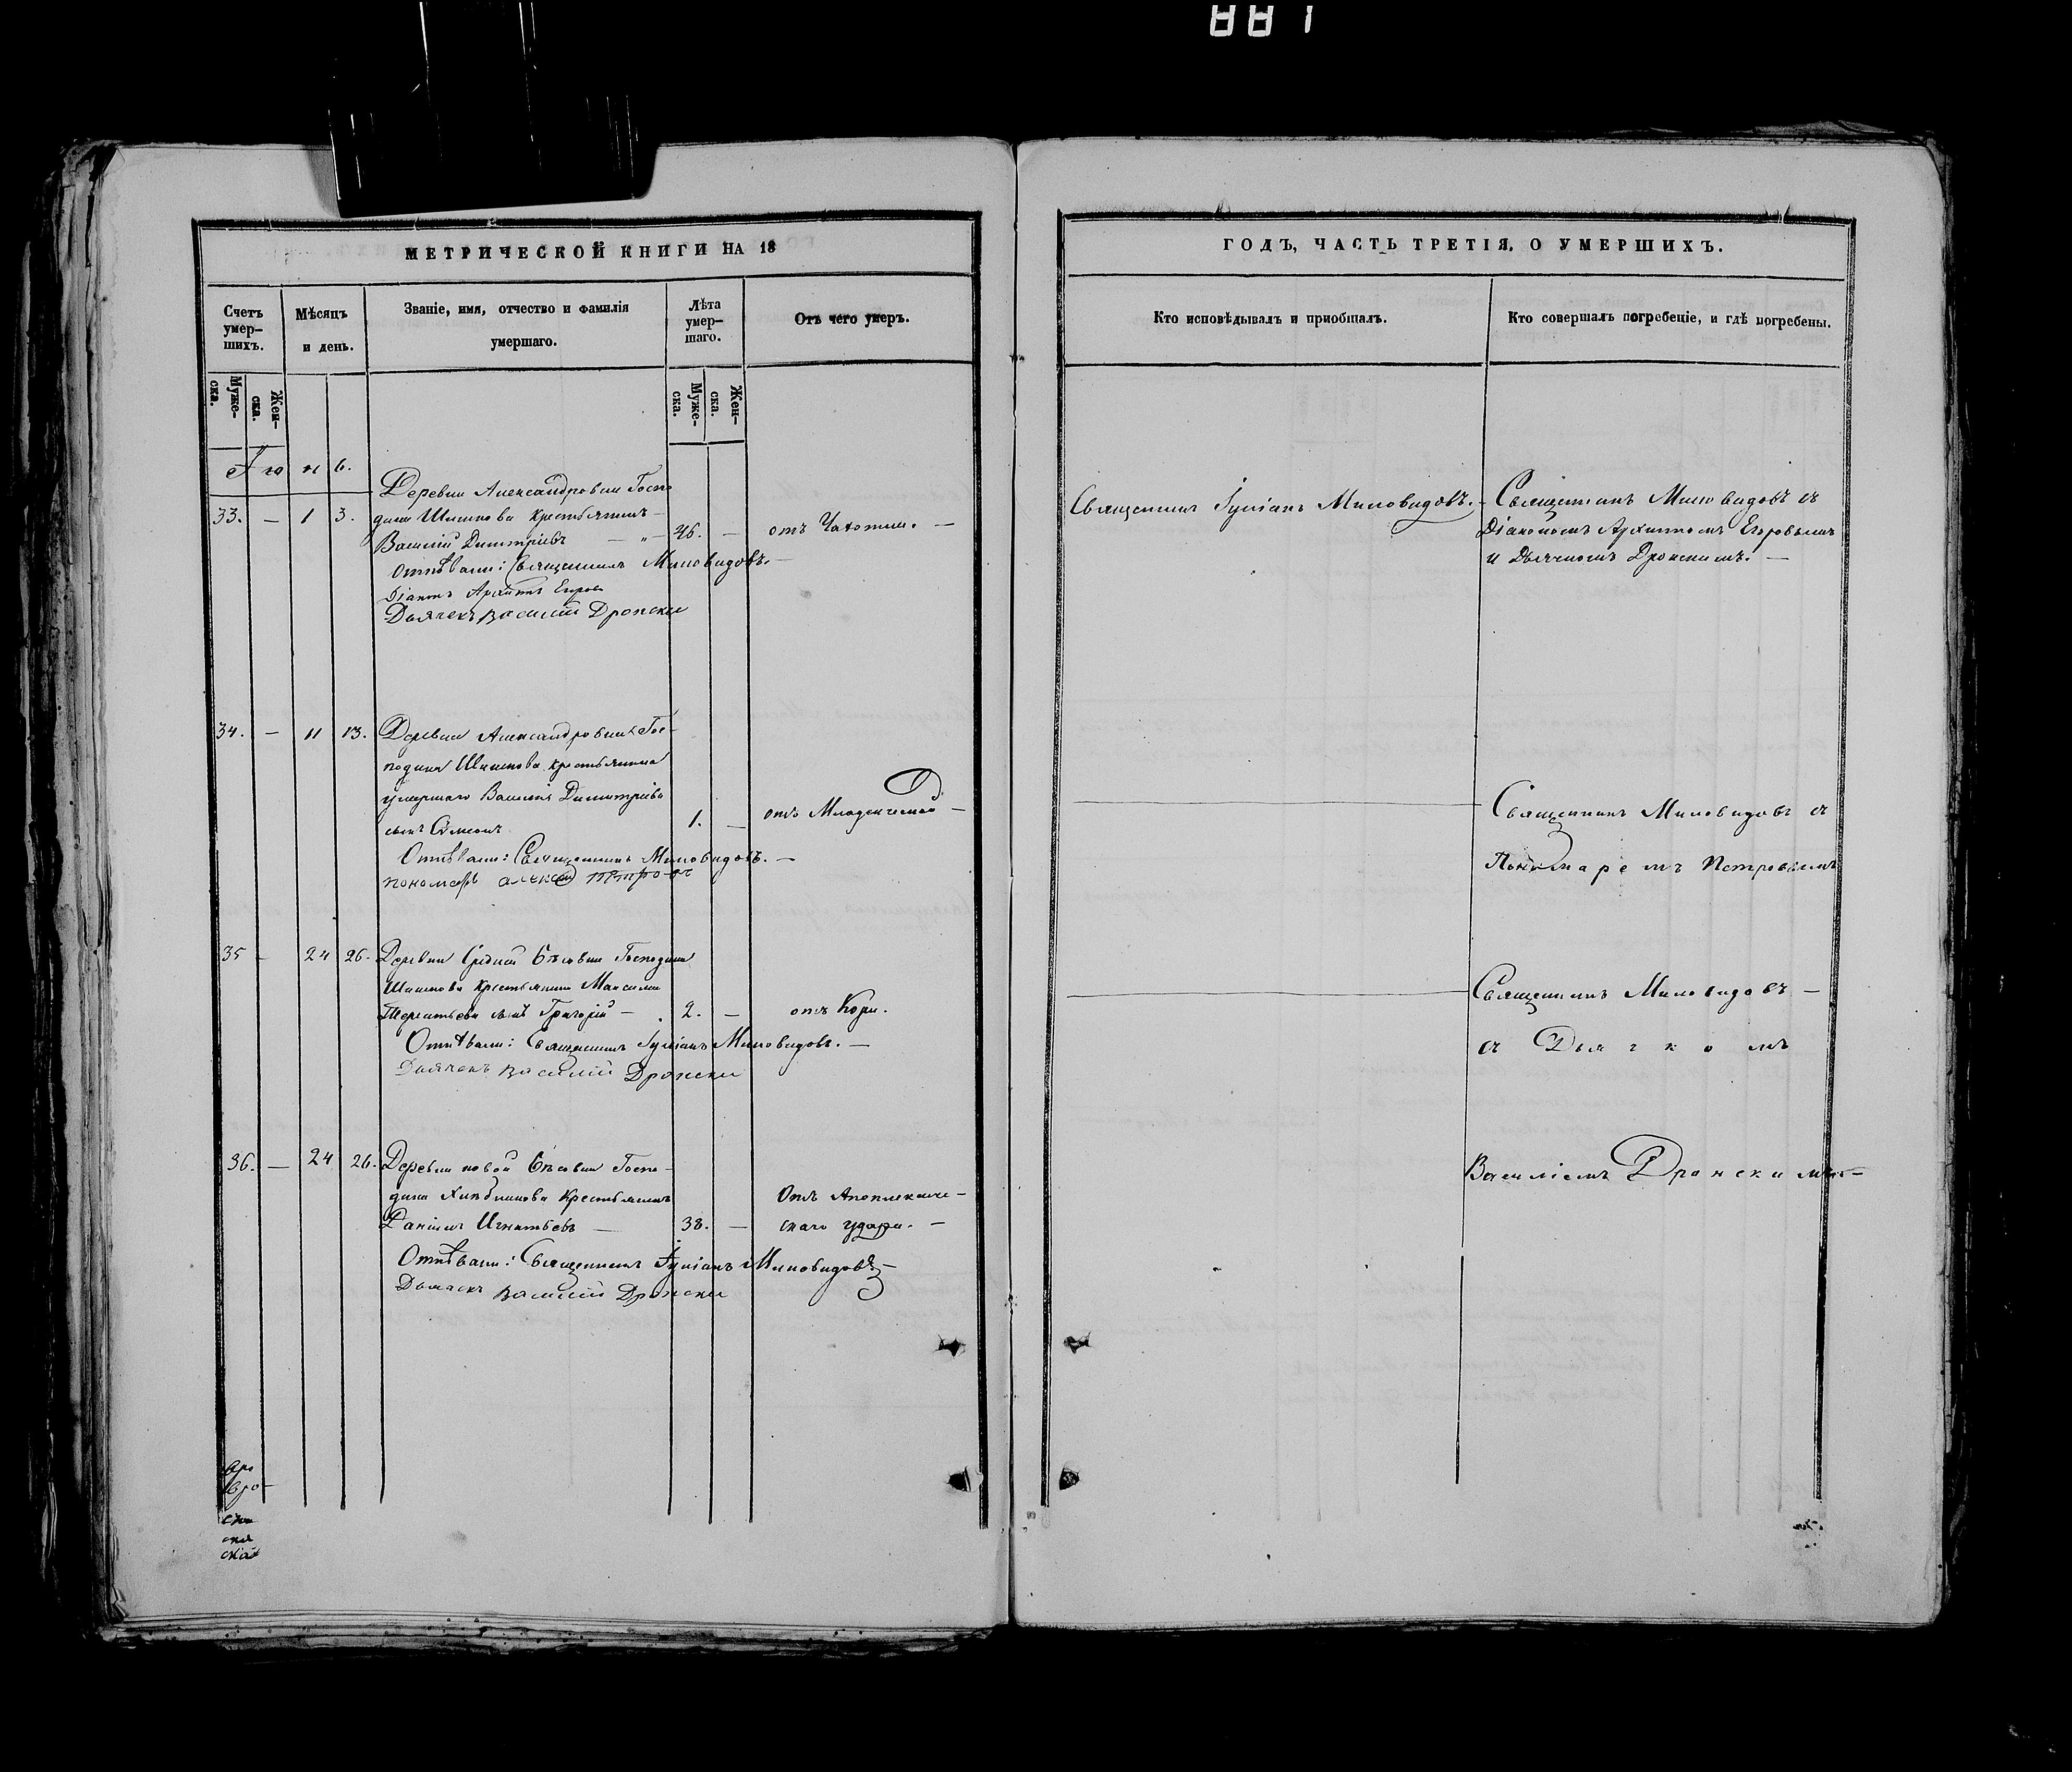 881
МЕТРИЧЕСКОЙ КНИГИ НА 18
Счетъ умер-шихъ.
Мѣсяцъ и день.
Званіе, имя, отчество и фамилія умершаго.
Лѣта умер-шаго.
Отъ чего умеръ.
Муже-ска.
Жен-ска.
Муже-ска.
Жен-ска.
33. — 1 3.
Деревни Александровки Госпо
дина Шишкова крестьянинъ —
Василій Димитріевъ — „ — 46. — отъ Чахотки. —
Отпѣвали: Священникъ Миловидовъ. —
Діаконъ Архиппъ Егоровъ
Дьячекъ Василій Дронски
34. — 11 13. Деревни Александровки Гос-
подина Шишкова крестьянина
умершаго Василія Димитріева
сынъ Симеонъ 1. — отъ Младенческой —
Отпѣвали: Священникъ Миловидовъ. —
пономарь алексѣй петровъ
35 — 24 26. Деревни Господина
Шишкова крестьянина Максима
Терентьева сынъ Григорій — 2. — отъ Кори.
Отпѣвали: Священникъ Іуліанъ Миловидовъ. —
Дьячекъ Василій Дронски
36. — 24 26. Деревни новой Госпо-
дина крестьянинъ
Даніилъ Игнатьевъ — 38. — Отъ Апоплексиче-
скаго удара. —
Отпѣвали: Священникъ Іуліанъ Миловидовъ —
Дьячекъ Василій Дронски
ГОДЪ, ЧАСТЬ ТРЕТІЯ, О УМЕРШИХЪ.
Кто исповѣдывалъ и пріобщалъ.
Кто совершалъ погребеніе, и гдѣ погребены.
Священникъ Іуліанъ Миловидовъ. —
Священникъ Миловидовъ съ
Діакономъ Архиппомъ Егоровымъ
и Дьячкомъ Дронскимъ. —
Священникъ Миловидовъ съ
Пономаремъ Петровымъ
Священникъ Миловидовъ —
съ Дьячкомъ
Василіемъ Дронскимъ —